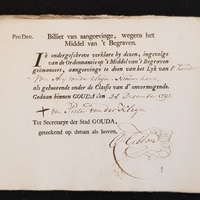 Pro Deo. Billiet van aangeevinge, wegens het
Middel van 't Begraven.
Ik ondergeschreve verklare by dezen, ingevolge
van de Ordonnantie op 't Middel van 't Begraven
geëmaneert, aangeevinge te doen van het Lyk van 't Kind
van
als gehoorende onder de Classis van d' onvermogende.
Gedaan binnen GOUDA, den 24 December 179
van der
Ter Secretarye der Stad GOUDA,
geteekend op datum als boven,